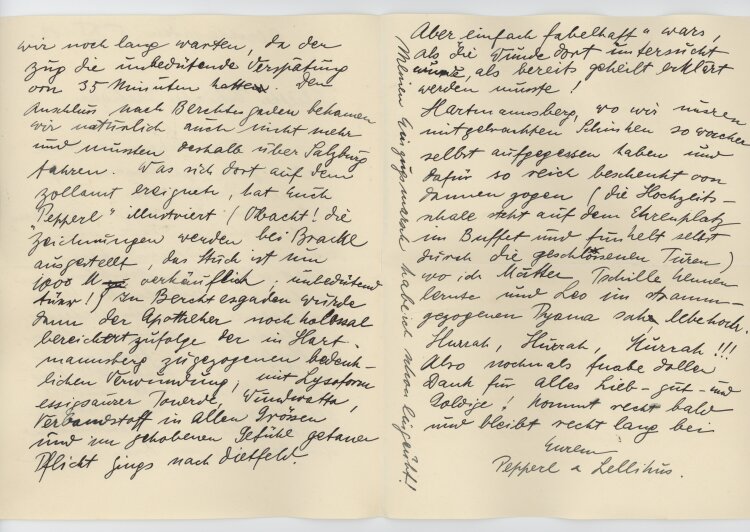 wir noch lang warten, da der
Zug die unbedütende Verspätung
von 35 Minuten hatte. Den
Anschluss nach Berchtesgaden bekamen
wir natürlich auch nicht mehr
und mussten deshalb über Salzburg
fahren. Was sich dort auf dem
Zollamt ereignete, hat Euch
"Pepperl" illustriert (Obacht! die
Zeichnungen werden bei Brackl
ausgestellt, das Stück ist um
1000 M verkäuflich; unbedütend
teurer!) In Berchtesgaden wurde
dann der Apotheker noch kolossal
bereichert zufolge der in Hart-
mannsberg zugezogenen bedenk-
lichen Verwundung, mit Lysoform
essigsaurer Tonerde, Wundwatta,
Verbandstoff in allen Grössen
und im gehobenen Gefühl getaner
Pflicht gings nach Dietfeld.
Aber einfach "fabelhaft" wars,
als die Wunde dort untersucht
wurde, als bereits geheilt erklärt
werden musste!
Hartmannsberg, wo wir unseren
mitgebrachten Schinken so wacker
selbst aufgegessen haben und
dafür so reich beschenkt von
dannen zogen (die Hochzeits-
schale steht auf dem Ehrenplatz
im Buffet und funkelt selbst
durch die geschlossenen Türen)
wo ich Mutter Tschille kennen
lernte und Leo im stramm-
gezogenen Pyama sah, lebe hoch.
Hurrah, Hurrah, Hurrah!!!
Also nochmals knabe doller
Dank für alles Lieb- gut- und
Goldige! Kommt recht bald
und bleibt recht lang bei
Eurem
Pepperl u Lellikus.
Meinen Einzugsmarsch habe ich schon eingeübt!